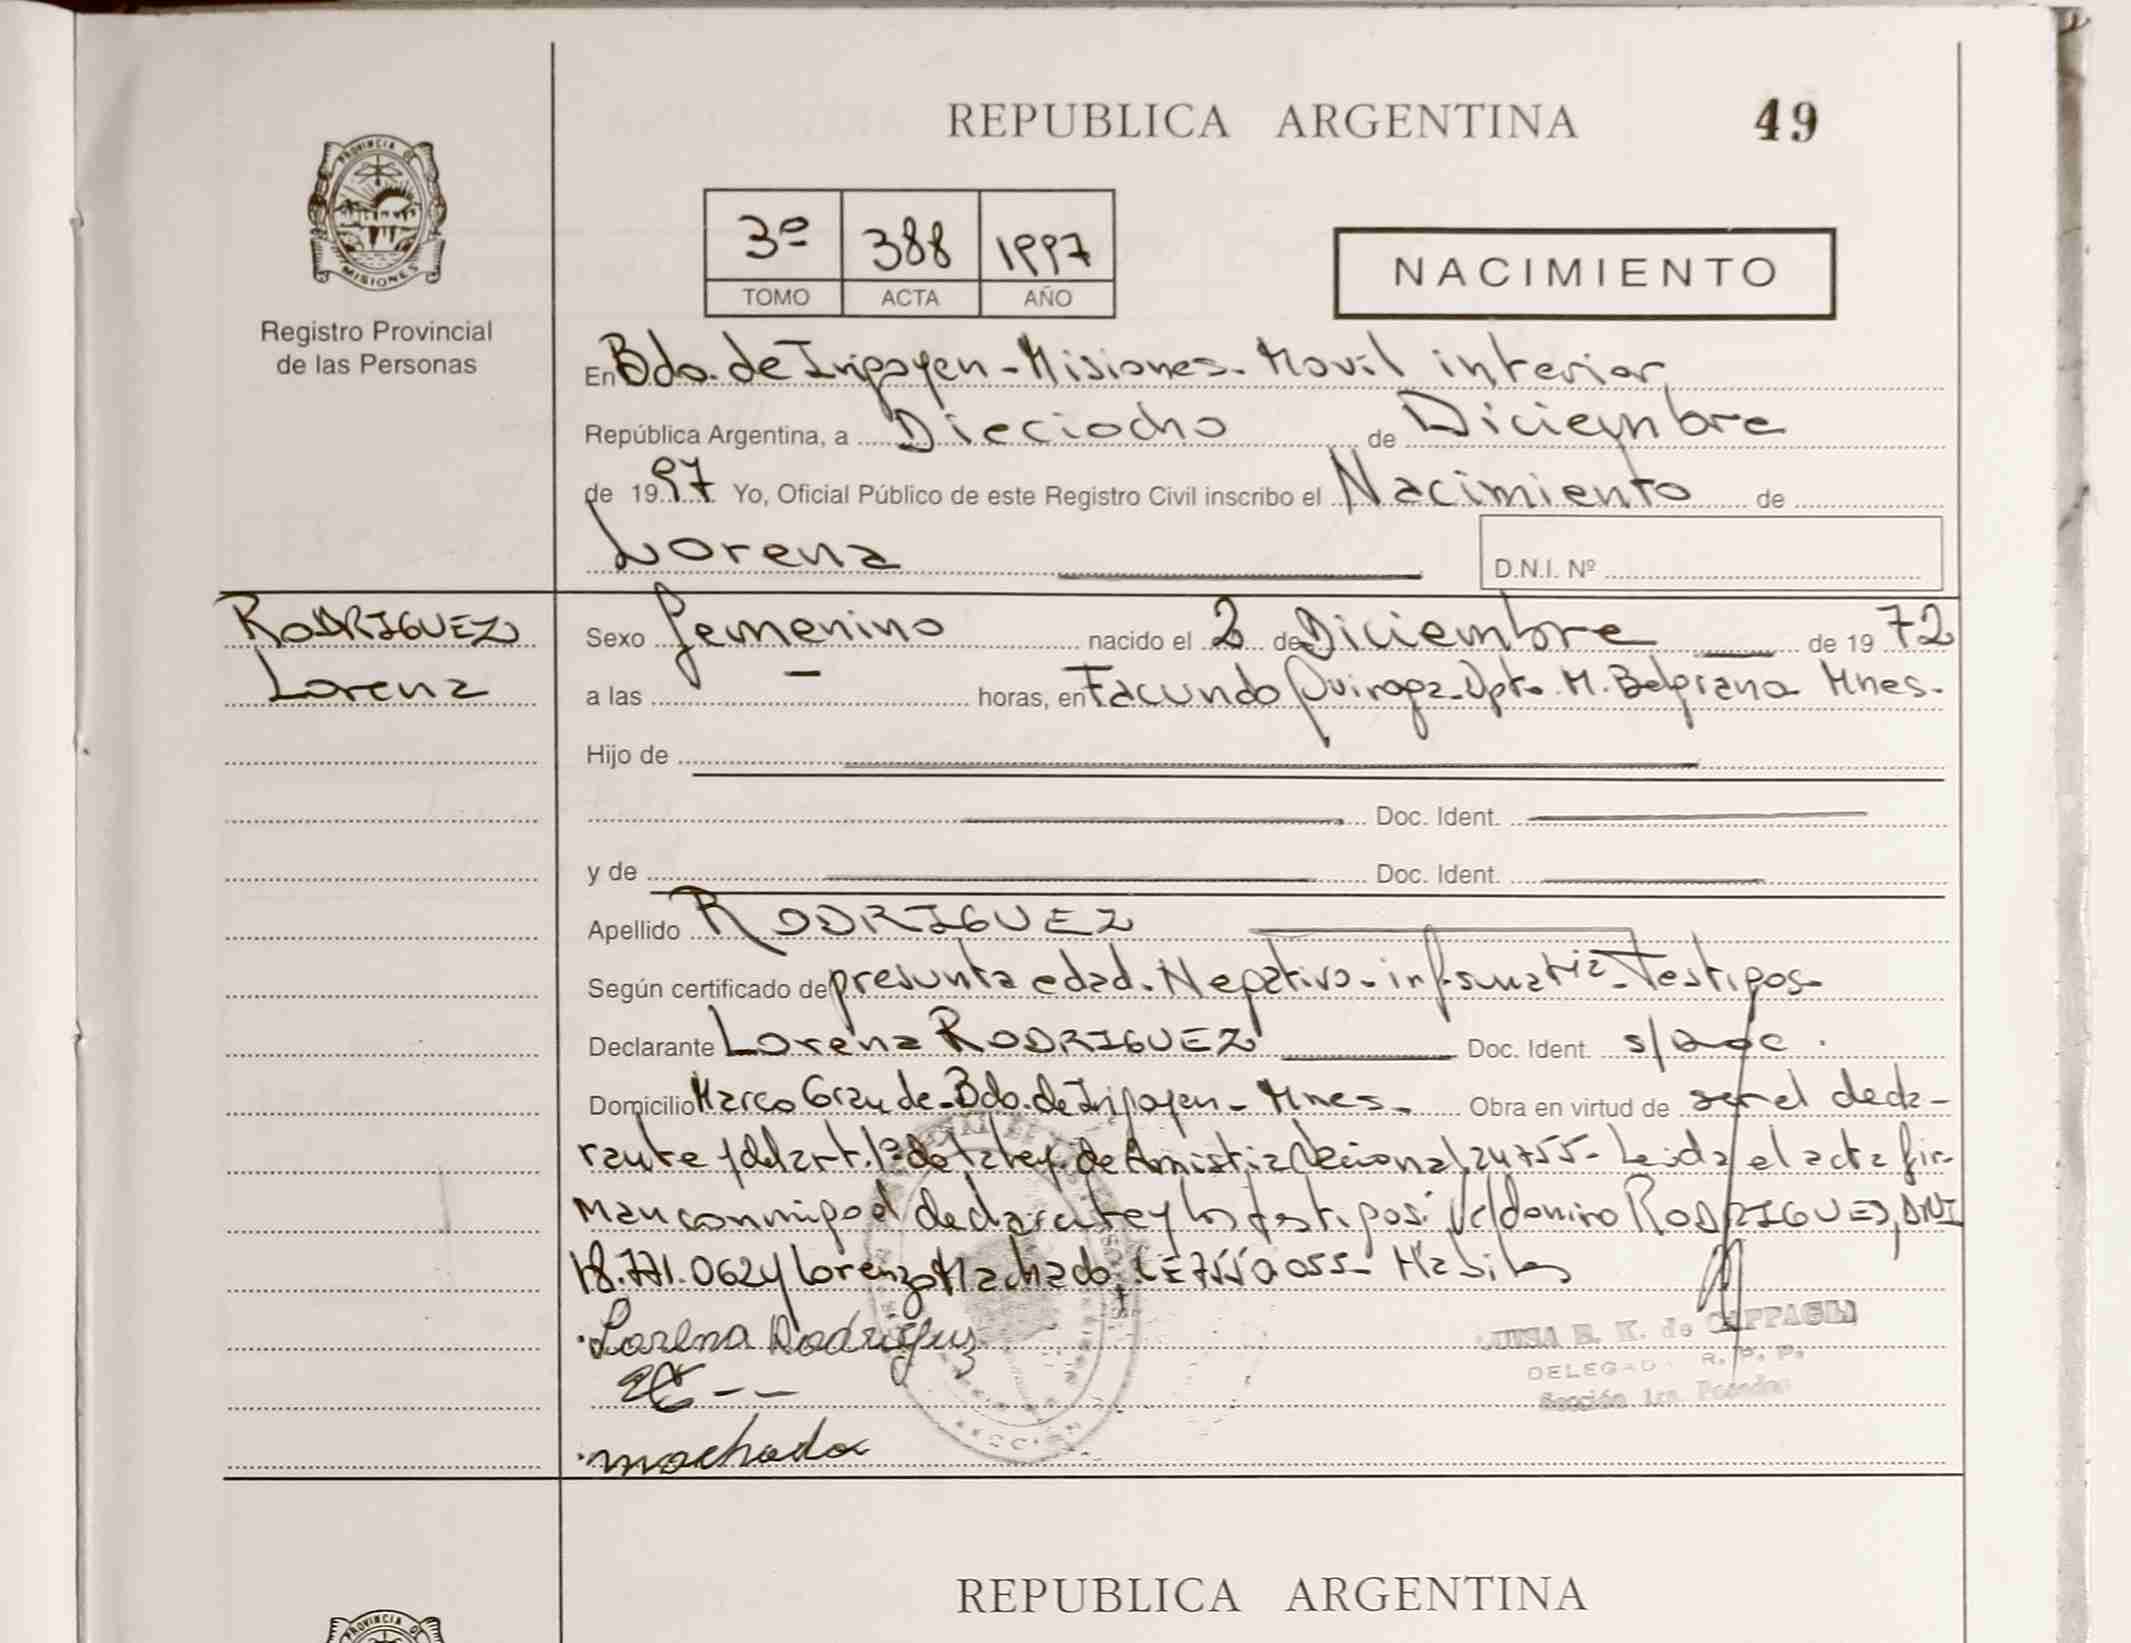 REPUBLICA ARGENTINA
49
PROVINCIA DE
MISIONES
Registro Provincial
de las Personas
3º 388 1997
TOMO ACTA AÑO
NACIMIENTO
En Bdo. de Irigoyen - Misiones - Movil interior
República Argentina, a Dieciocho de Diciembre
de 1997 Yo, Oficial Público de este Registro Civil inscribo el Nacimiento de
Lorena
D.N.I. Nº
RODRIGUEZ
Lorena
Sexo femenino nacido el 2 de Diciembre de 1972
a las — horas, en Facundo Quiroga - Dpto. M. Belgrano Mnes.
Hijo de
Doc. Ident.
y de Doc. Ident.
Apellido RODRIGUEZ
Según certificado de presunta edad. Negativo - Testigos
Declarante Lorena RODRIGUEZ Doc. Ident. s/doc.
Domicilio Marco Grande - Bdo. de Irigoyen - Mnes. Obra en virtud de ser el decla-
rante y del art. 1º de la ley de Amistia Nacional 24755 - Leida el acta fir-
man conmigo el declarante y los testigos: Valdomiro RODRIGUEZ, DNI
18.771.062 y Lorenzo Machado, Habiles
Lorena Rodriguez
machado
de CAFFAGLI
DELEGADA R. P. P.
Sección 1ra. Posadas
REPUBLICA ARGENTINA
PROVINCIA DE